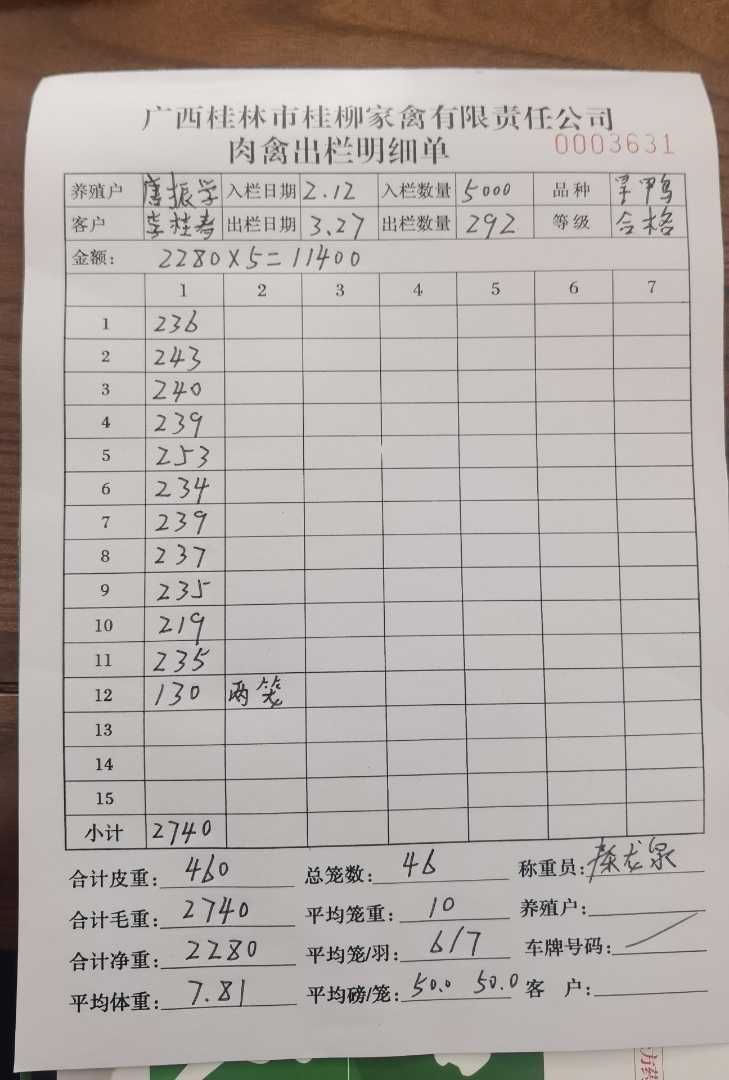 广西桂林市桂柳家禽有限责任公司
肉禽出栏明细单 0003631
养殖户 唐振学 入栏日期 2.12 入栏数量 5000 品种 鸭
客户 李桂寿 出栏日期 3.27 出栏数量 292 等级 合格
金额: 2280×5=11400
1 2 3 4 5 6 7
1 236
2 243
3 240
4 239
5 253
6 234
7 239
8 237
9 235
10 219
11 235
12 130 两笼
13
14
15
小计 2740
合计皮重: 460 总笼数: 46 称重员: 龙泉
合计毛重: 2740 平均笼重: 10 养殖户:
合计净重: 2280 平均笼/羽: 6/7 车牌号码: /
平均体重: 7.81 平均磅/笼: 50.0 50.0 客 户: